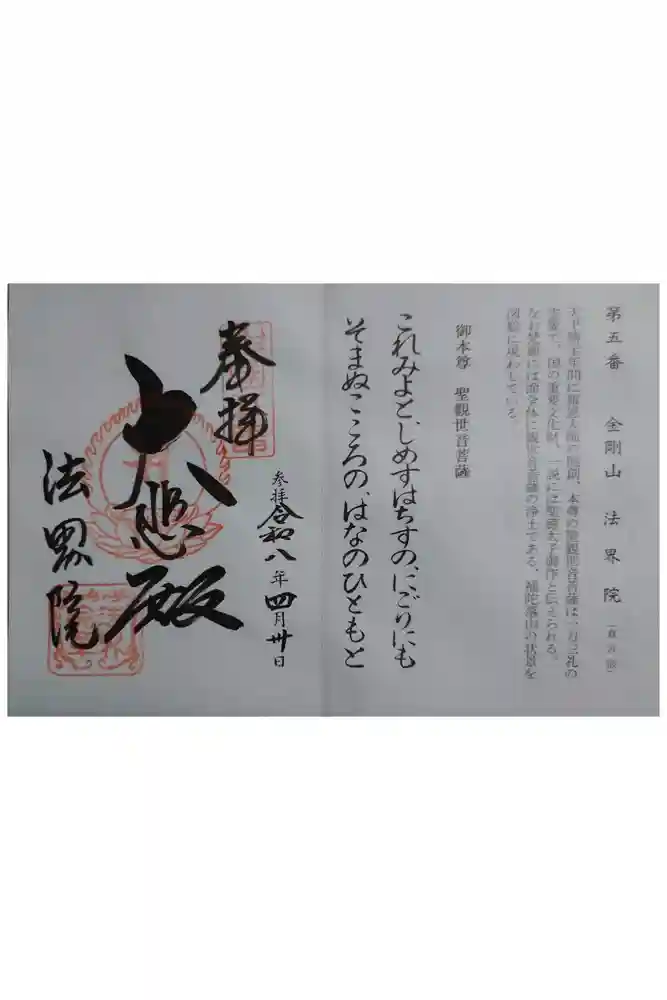 第五番　金剛山　法界院（真言宗）
天平勝宝年間に報恩大師の開創、本尊の聖観世音菩薩は一刀三礼の
国の重要文化財。一説には聖徳太子御作と伝えられる。
なお
には
全体に観世音菩薩の浄土である、補陀落山の状景を
に現わしている。
御本尊　聖觀世音菩薩
これみよと、しめすはちすの、にごりにも
そまぬこころの、はなのひともと
奉拝
参拝 令和八年四月卅日
大悲殿
法界院